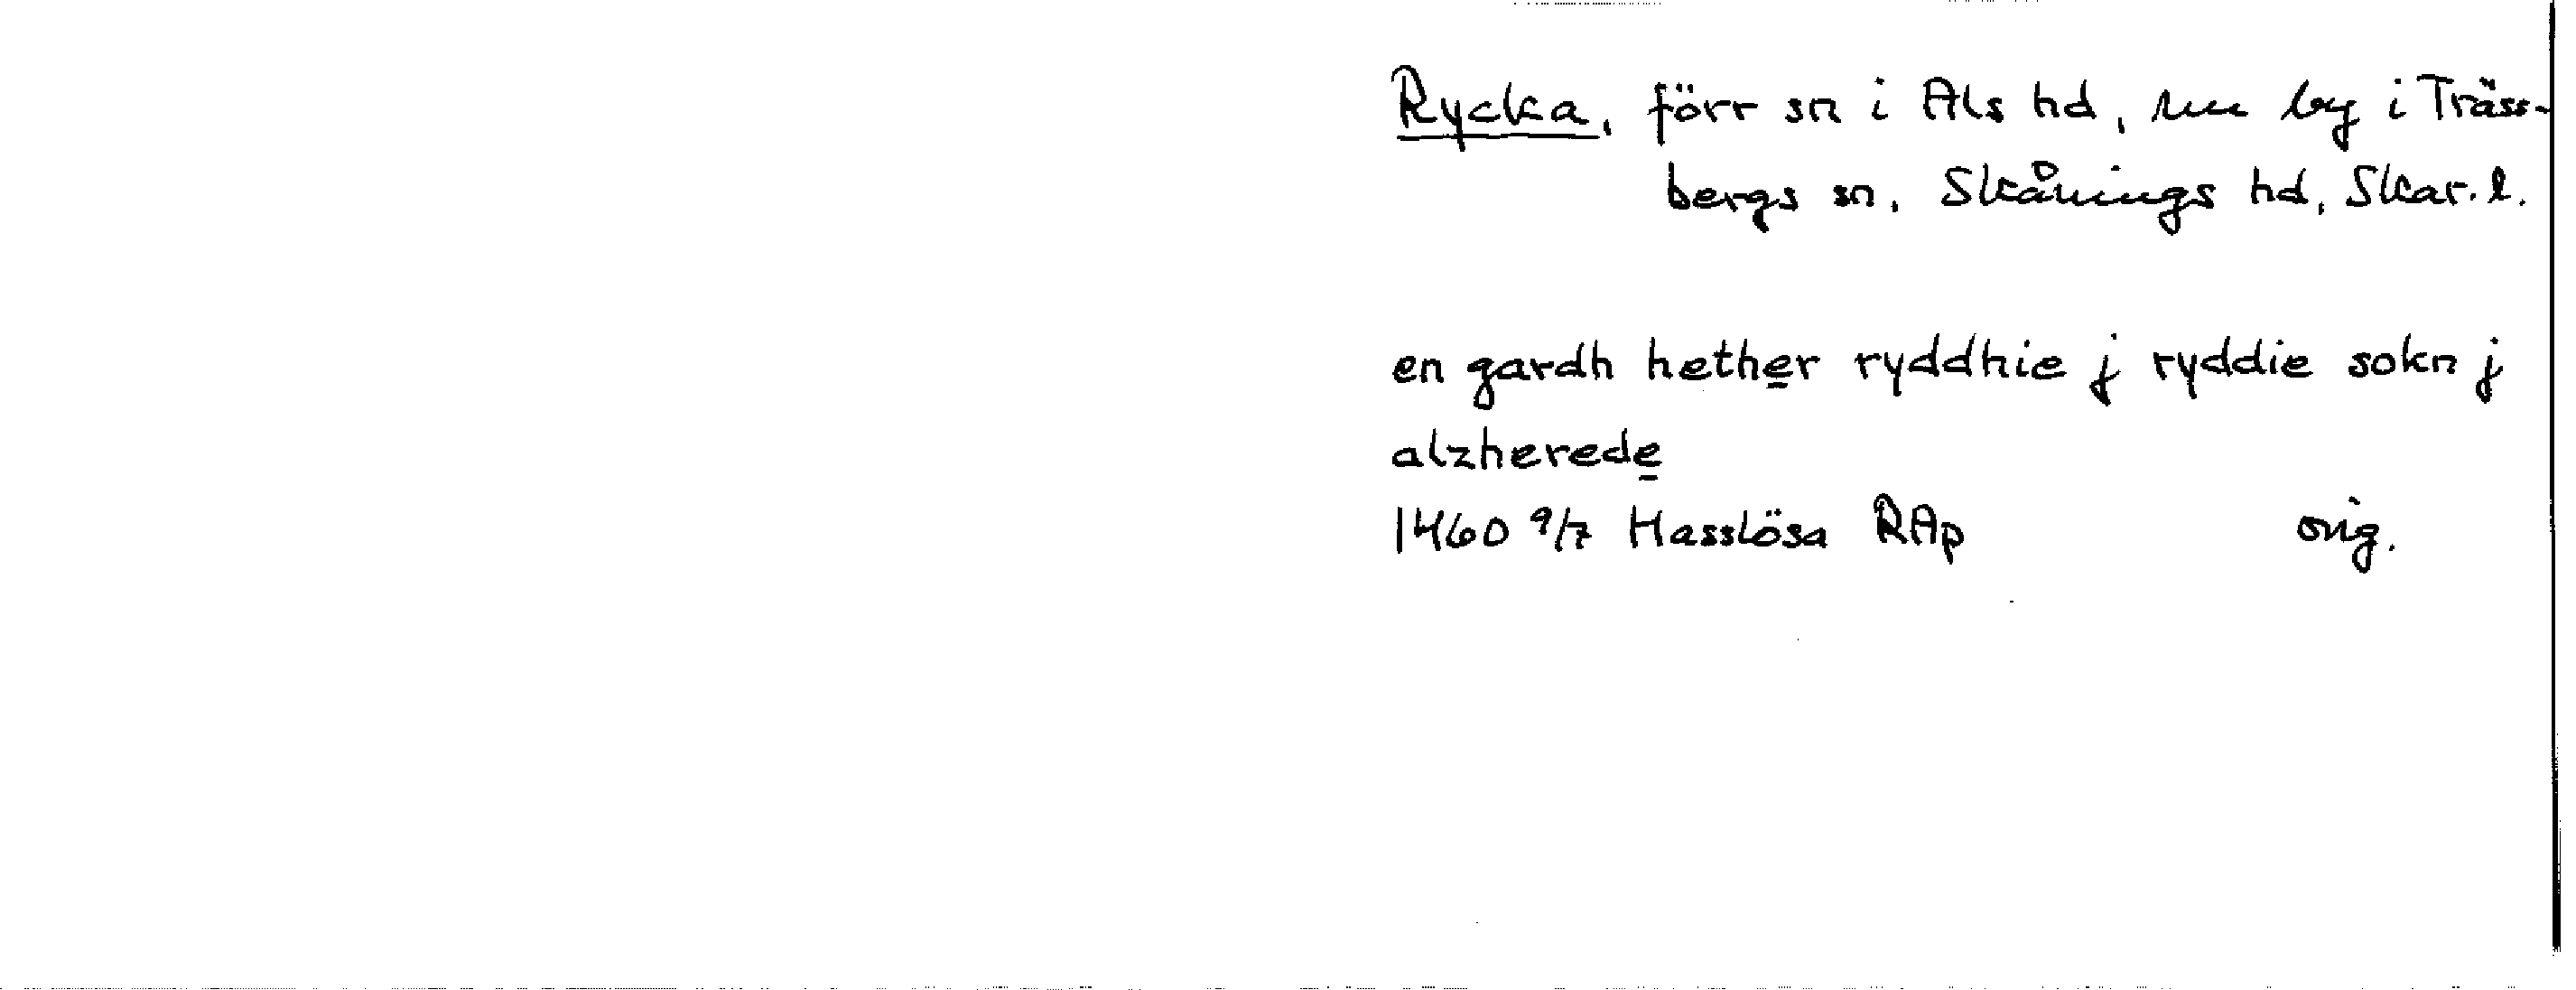 Rycka, förr sn i Als hd, nu by i Träss-
bergs sn, Skånings hd, Skar. l.
en gardh hether ryddhie j ryddie sokn j
alzherede
1460 9/7 Hasslösa RAp orig.